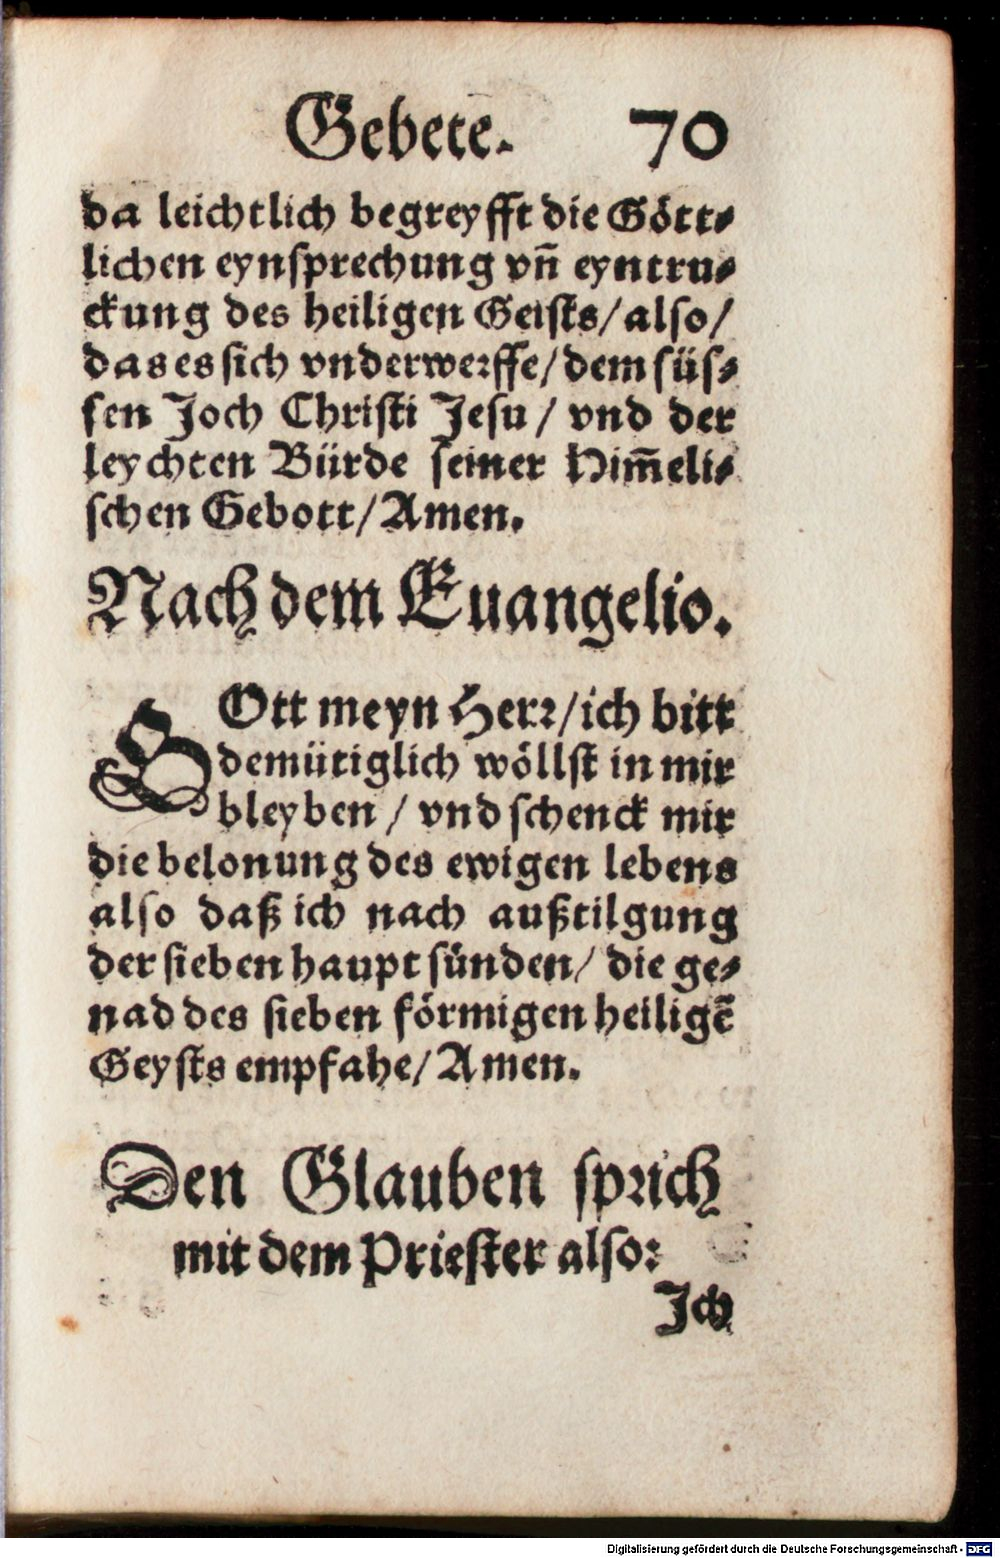 Gebete. 70
da leichtlich begreyfft die Gött⸗
lichen eynsprechung vn̄ eyntru⸗
ckung des heiligen Geists/also/
das es sich vnderwerffe/dem süs⸗
sen Joch Christi Jesu/ vnd der
leychten Bürde seiner Him̄eli⸗
schen Gebott/Amen.
Nach dem Euangelio.
GOtt meyn Herr/ich bitt
demütiglich wöllst in mir
bleyben/ vnd schenck mir
die belonung des ewigen lebens
also daß ich nach außtilgung
der sieben haupt sünden/ die ge⸗
nad des sieben förmigen heiligē
Geysts empfahe/Amen.
Den Glauben sprich
mit dem Priester also:
Jch
Digitalisierung gefördert durch die Deutsche Forschungsgemeinschaft - DFG